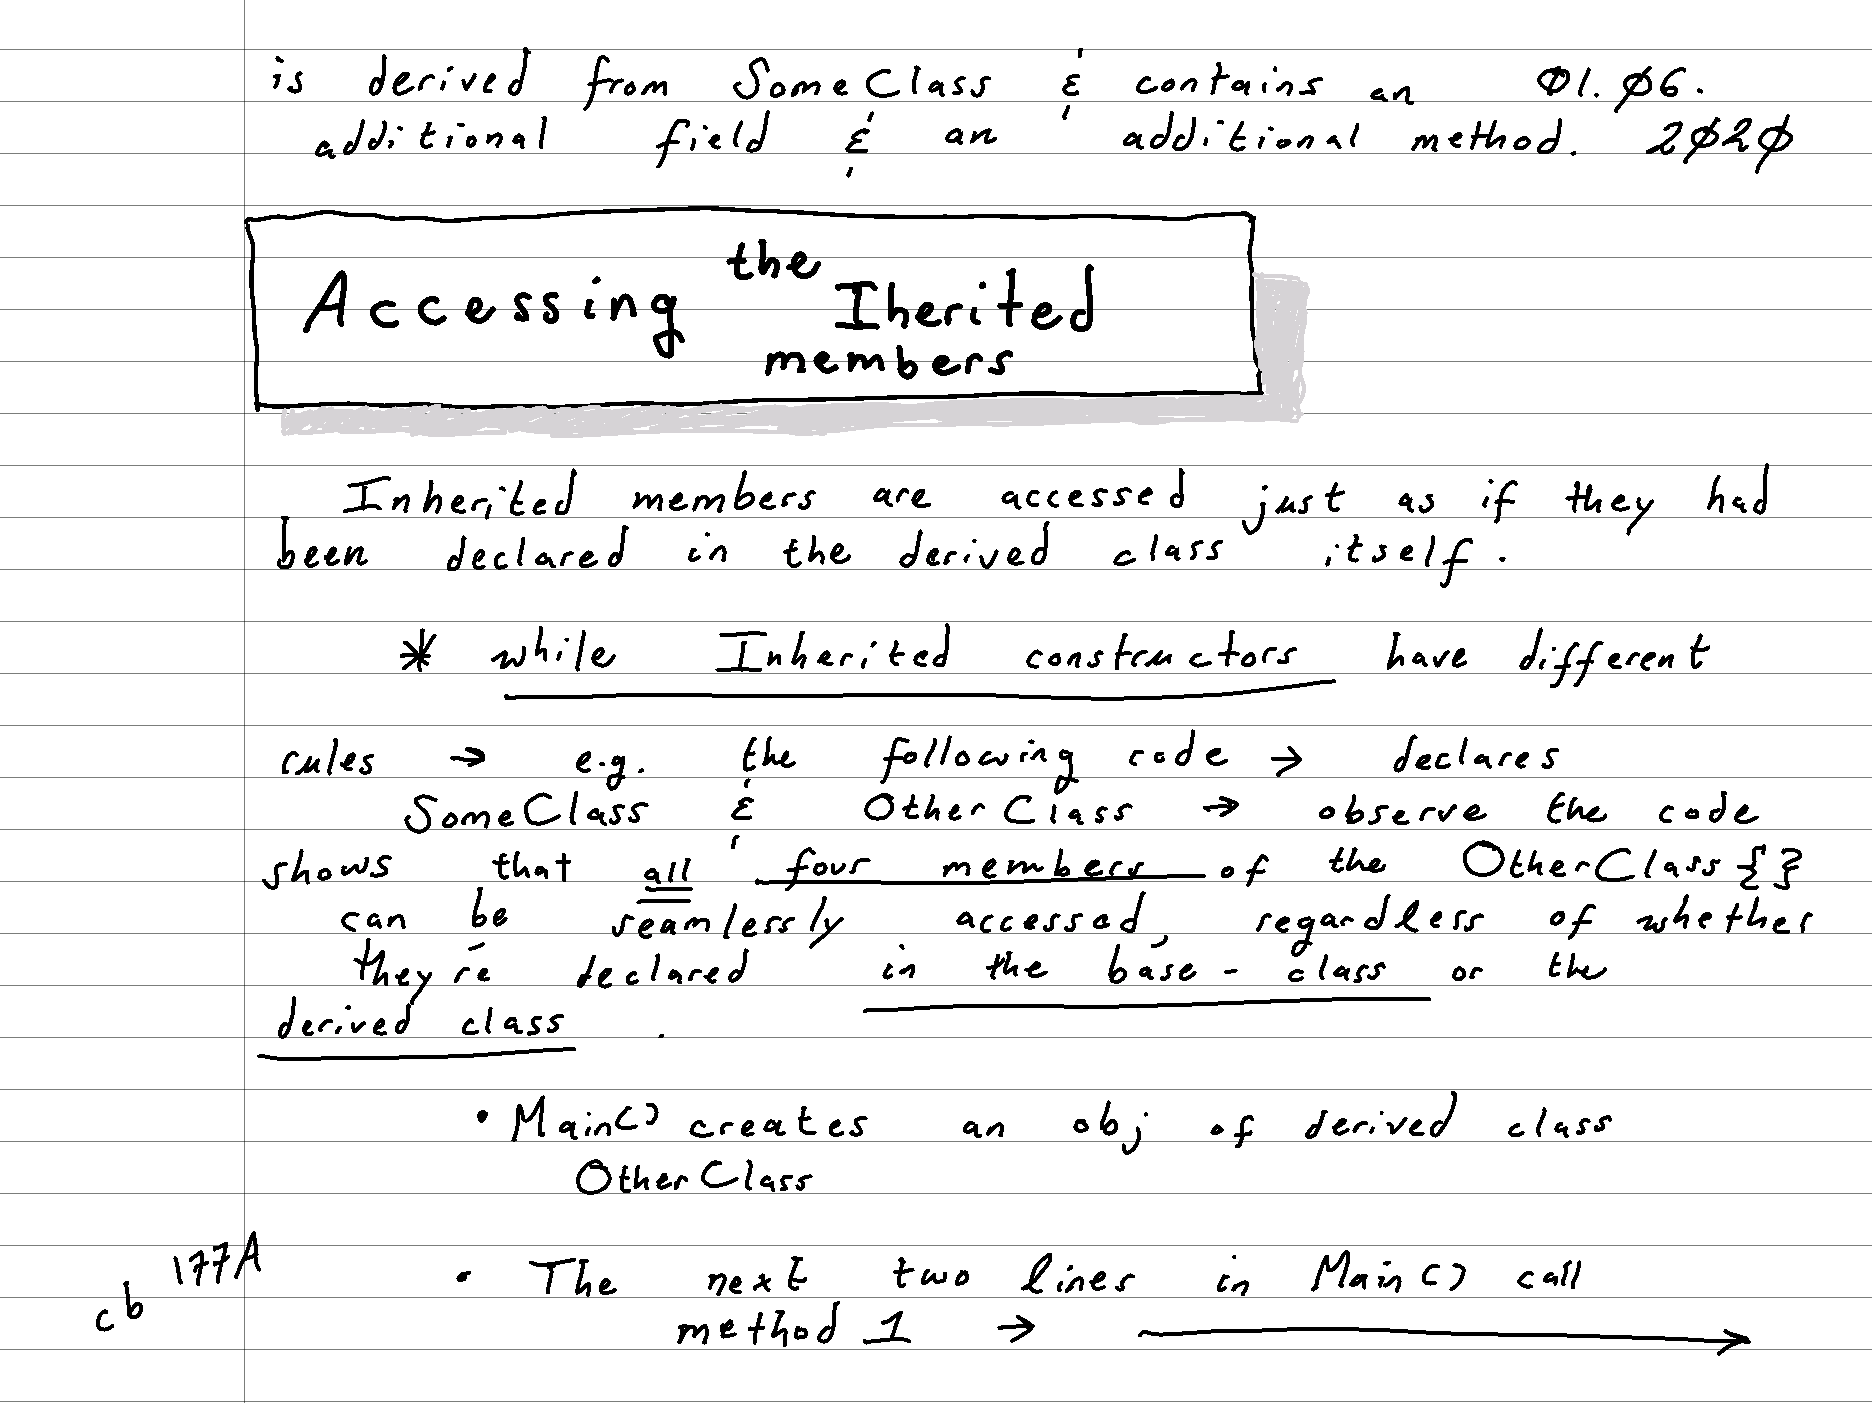 is derived from SomeClass & contains an 01.06.
additional field & an additional method. 2020
Accessing the Iherited
members
Inherited members are accessed just as if they had
been declared in the derived class itself.
* while Inherited constructors have different
rules → e.g. the following code → declares
SomeClass & OtherClass → observe the code
shows that all four members of the OtherClass{}
can be seamlessly accessed, regardless of whether
they're declared in the base-class or the
derived class .
• Main() creates an obj of derived class
OtherClass
cb 177A
• The next two lines in Main() call
method 1 → →